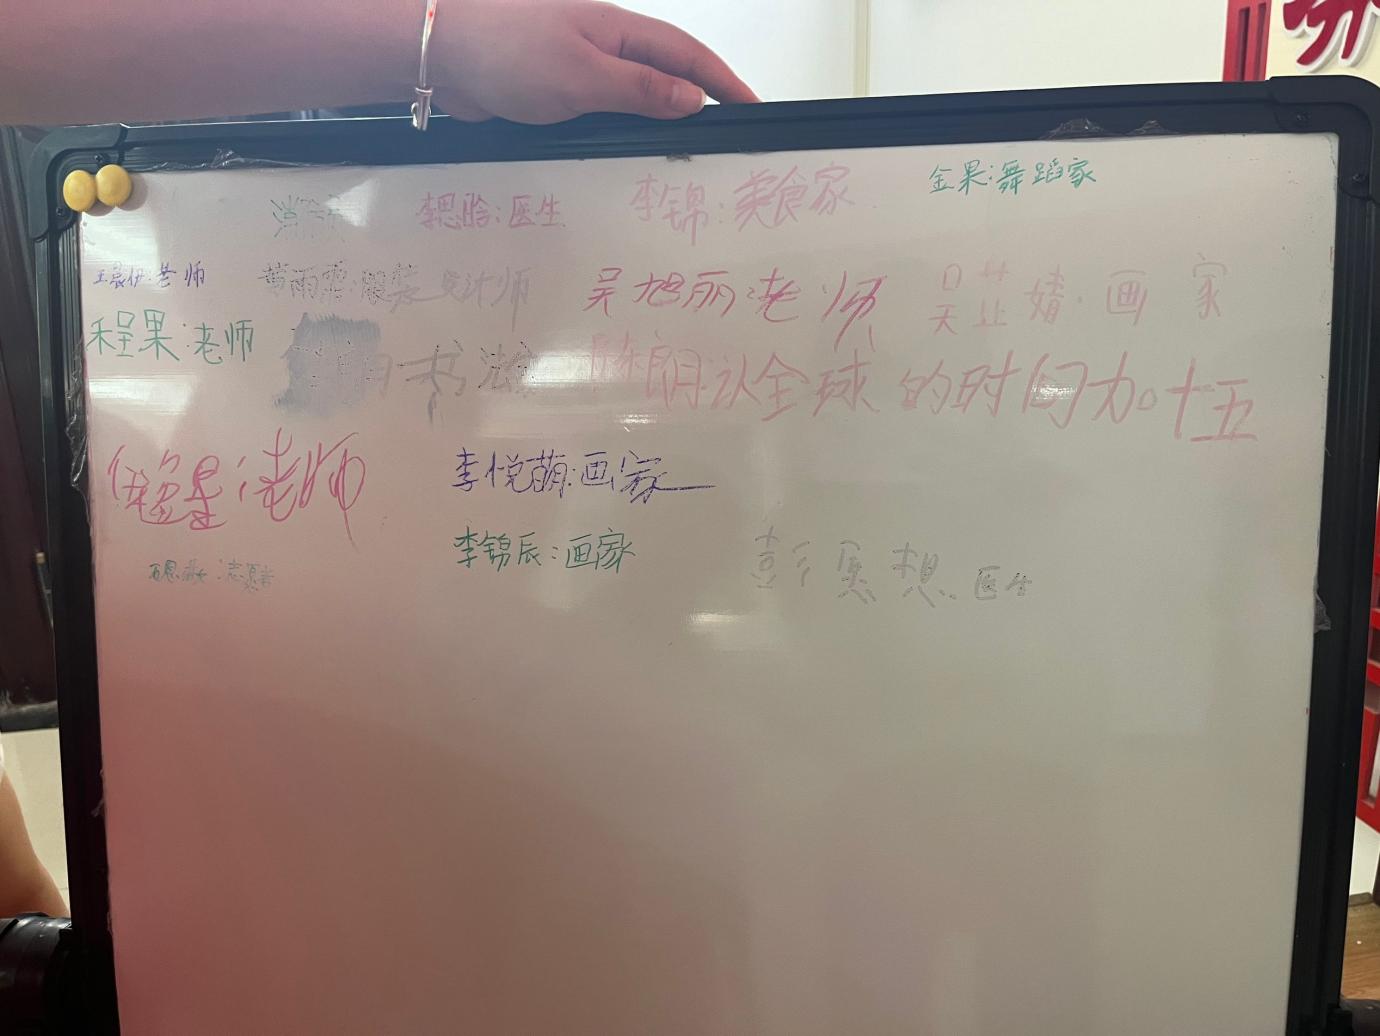 李思晗:医生
李锦:美食家
金果:舞蹈家
老师
雨 服装设计师
吴旭丽:老师
吴芷婧:画家
程果:老师
书法
陈朗:让全球的时间加十五
老师
李悦萌:画家
李锦辰:画家
彭思想:医生
志愿者